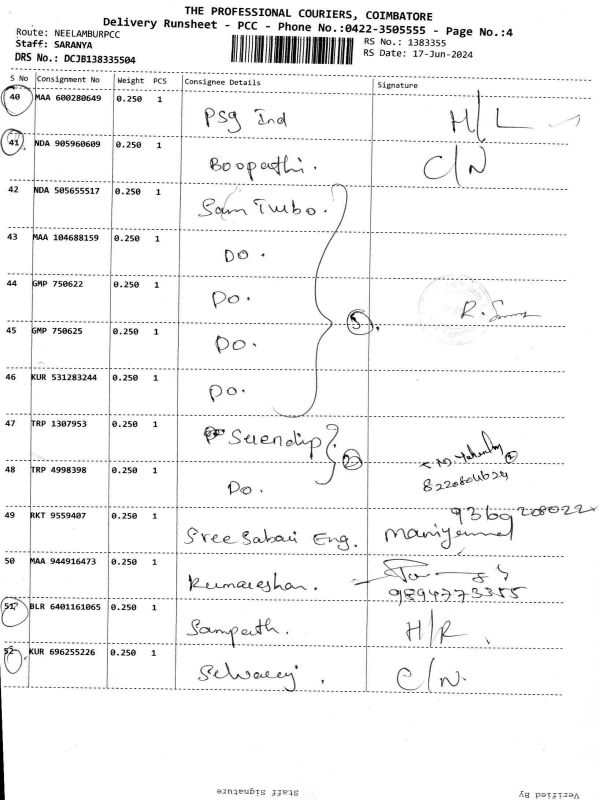 THE PROFESSIONAL COURIERS, COIMBATORE
Delivery Runsheet - PCC - Phone No.:0422-3505555 - Page No.:4
Route: NEELAMBURPCC
Staff: SARANYA
DRS No.: DCJB138335504
RS No.: 1383355
RS Date: 17-Jun-2024
S No Consignment No Weight PCS Consignee Details Signature
40 MAA 600280649 0.250 1 PSG Ind H/L
41 NDA 905960609 0.250 1 Boopathi. C/N
42 NDA 505655517 0.250 1 Sam Turbo.
43 MAA 104688159 0.250 1 Do.
44 GMP 750622 0.250 1 Do. R.
5
45 GMP 750625 0.250 1 Do.
46 KUR 531283244 0.250 1 Do.
47 TRP 1307953 0.250 1 Serendip
2
48 TRP 4998398 0.250 1 Do.
49 RKT 9559407 0.250 1 Sree Sabari Eng.
50 MAA 944916473 0.250 1 Kumareshan.
9894773355
51 BLR 6401161065 0.250 1 Sampath. H/R.
52 KUR 696255226 0.250 1 Selvaraj. C/N.
Staff Signature Verified By